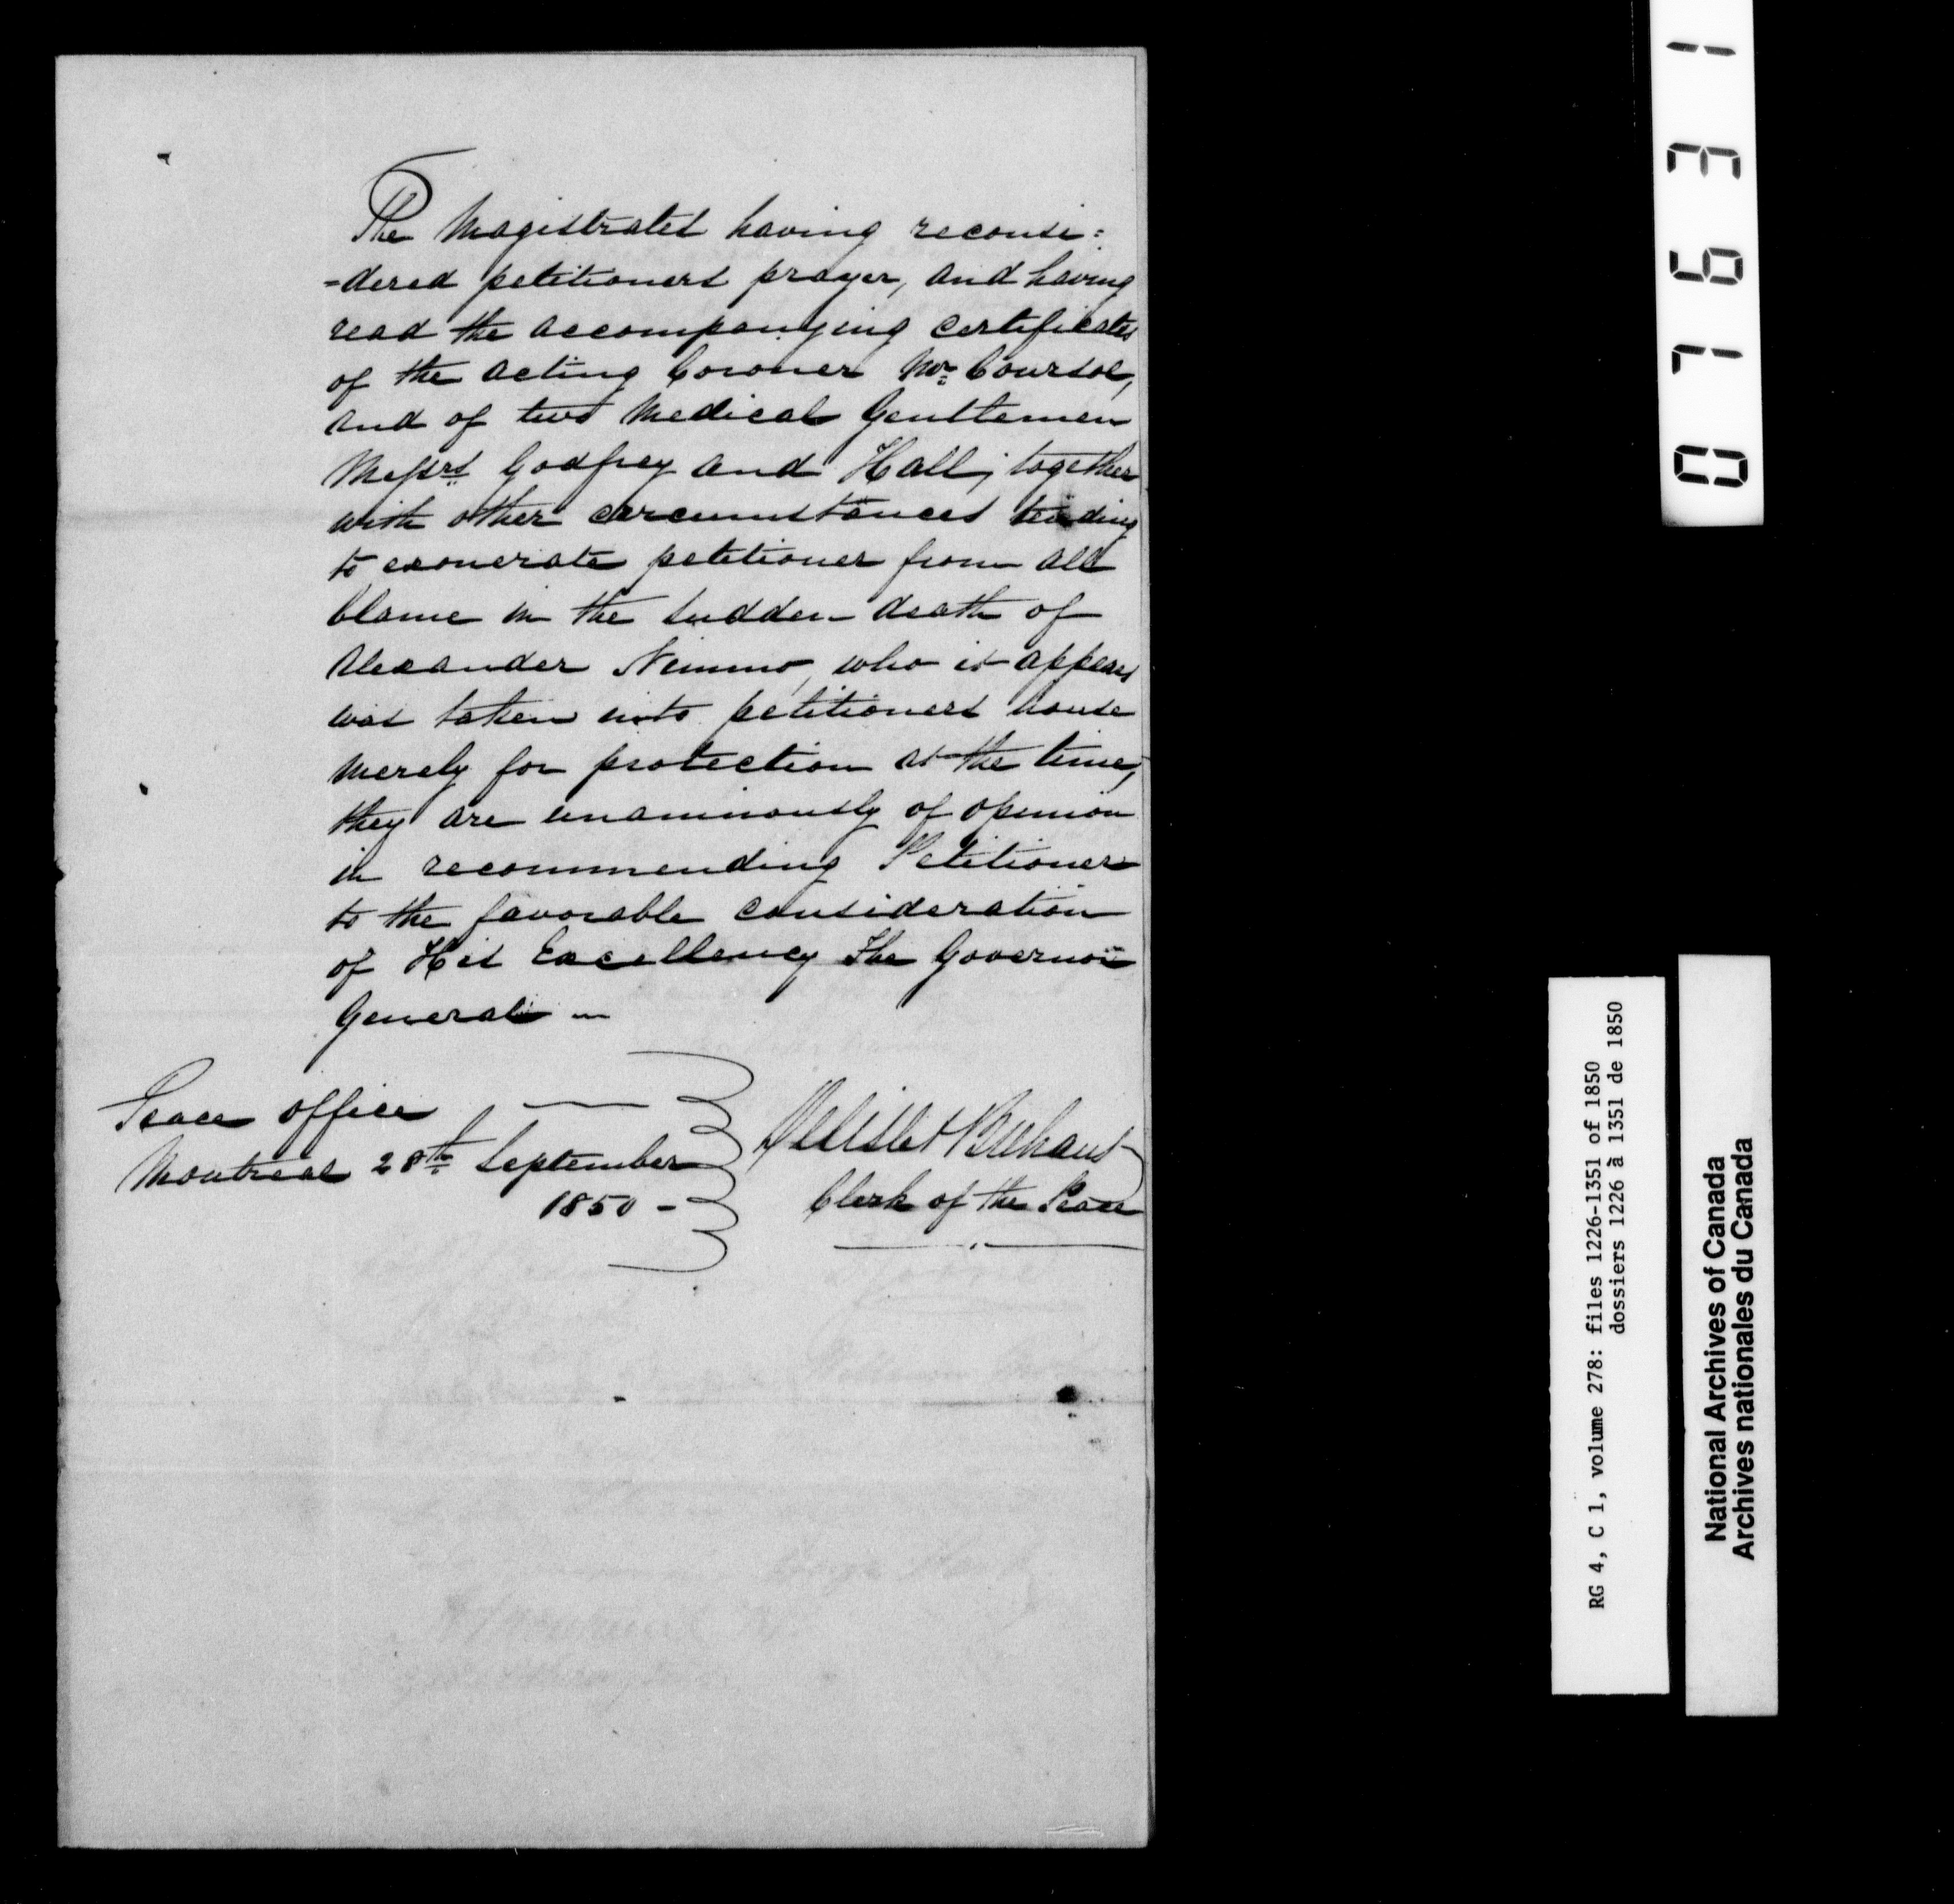 The Magistrates having reconsi=
-dered petitioners prayer, and having
read the accompanying certificates
of the acting Coroner Mr. Coursol,
and of two Medical Gentlemen
Messrs Godfrey and Hall; together
with other circumstances tending
to exonerate petitioner from all
blame in the sudden death of
Alexander Nimmo, who it appears
was taken into petitioners house
merely for protection at the time,
they are unanimously of opinion
in recommending Petitioner
to the favorable consideration
of His Excellency The Governor
General —
Peace office —
Montreal 28th September
1850 -
Delisle & Brehaut
Clerk of the Peace
071631
RG 4, C 1, volume 278: files 1226-1351 of 1850
dossiers 1226 à 1351 de 1850
National Archives of Canada
Archives nationales du Canada